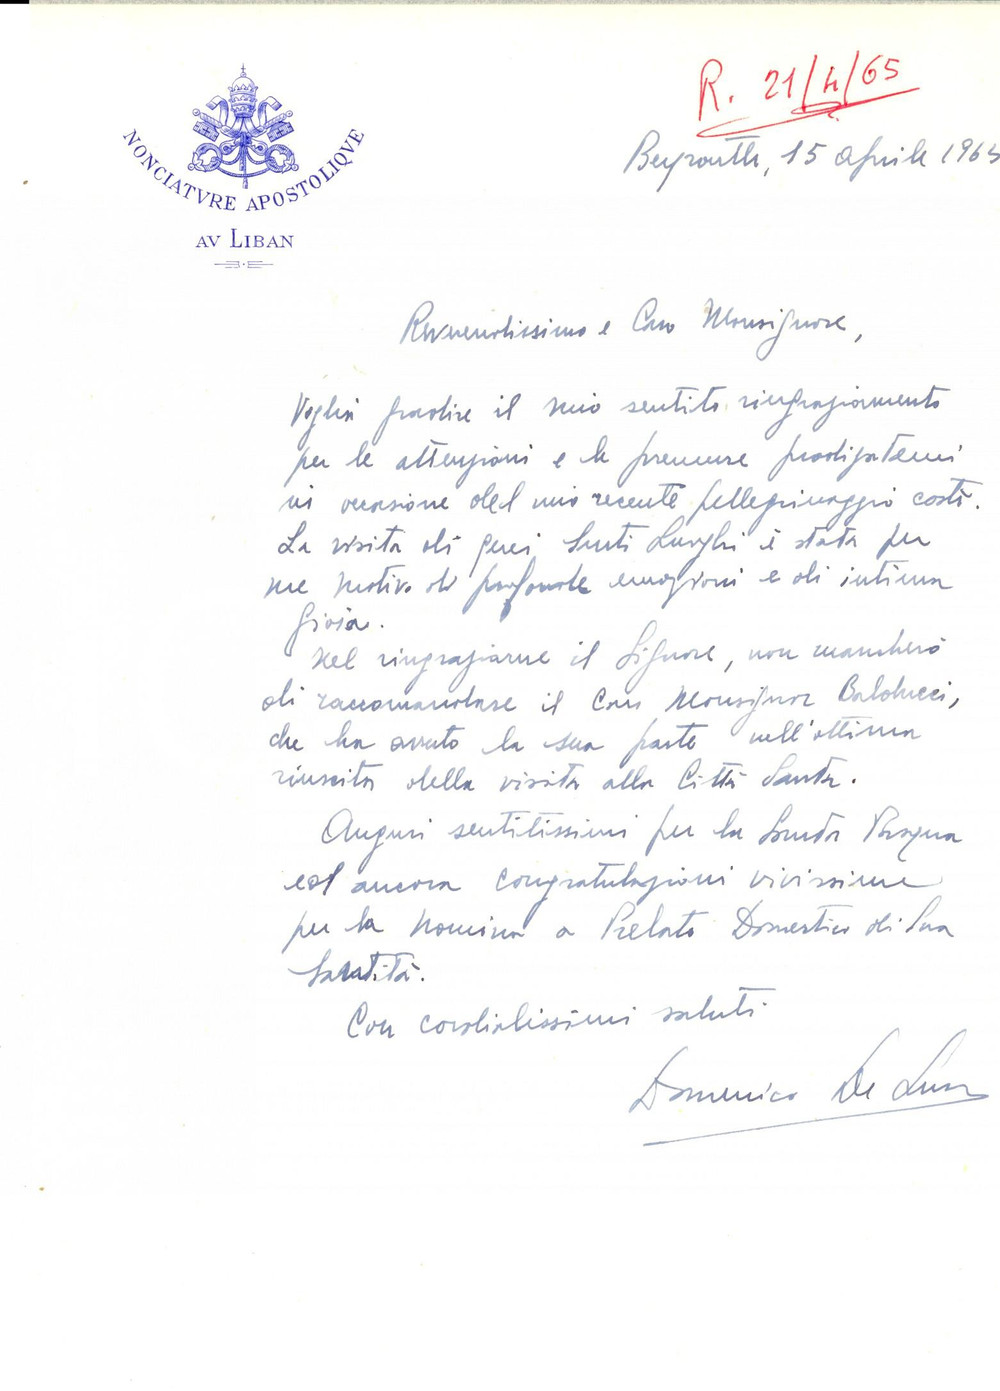 R. 21/4/65
NONCIATVRE APOSTOLIQVE
AV LIBAN
Beyrouth, 15 aprile 1965
Reverendissimo e Caro Monsignore,
Voglia gradire il mio sentito ringraziamento
per le attenzioni e le premure prodigatemi
in occasione del mio recente pellegrinaggio costì.
La visita di quei Santi Luoghi è stata per
me motivo di profonde emozioni e di intima
gioia.
Nel ringraziarne il Signore, non mancherò
di raccomandare il Caro Monsignor Balducci,
che ha avuto la sua parte nell'ottima
riuscita della visita alla Città Santa.
Auguri sentitissimi per la Santa Pasqua
ed ancora congratulazioni vivissime
per la nomina a Prelato Domestico di Sua
Santità.
Con cordialissimi saluti
Domenico De Luca